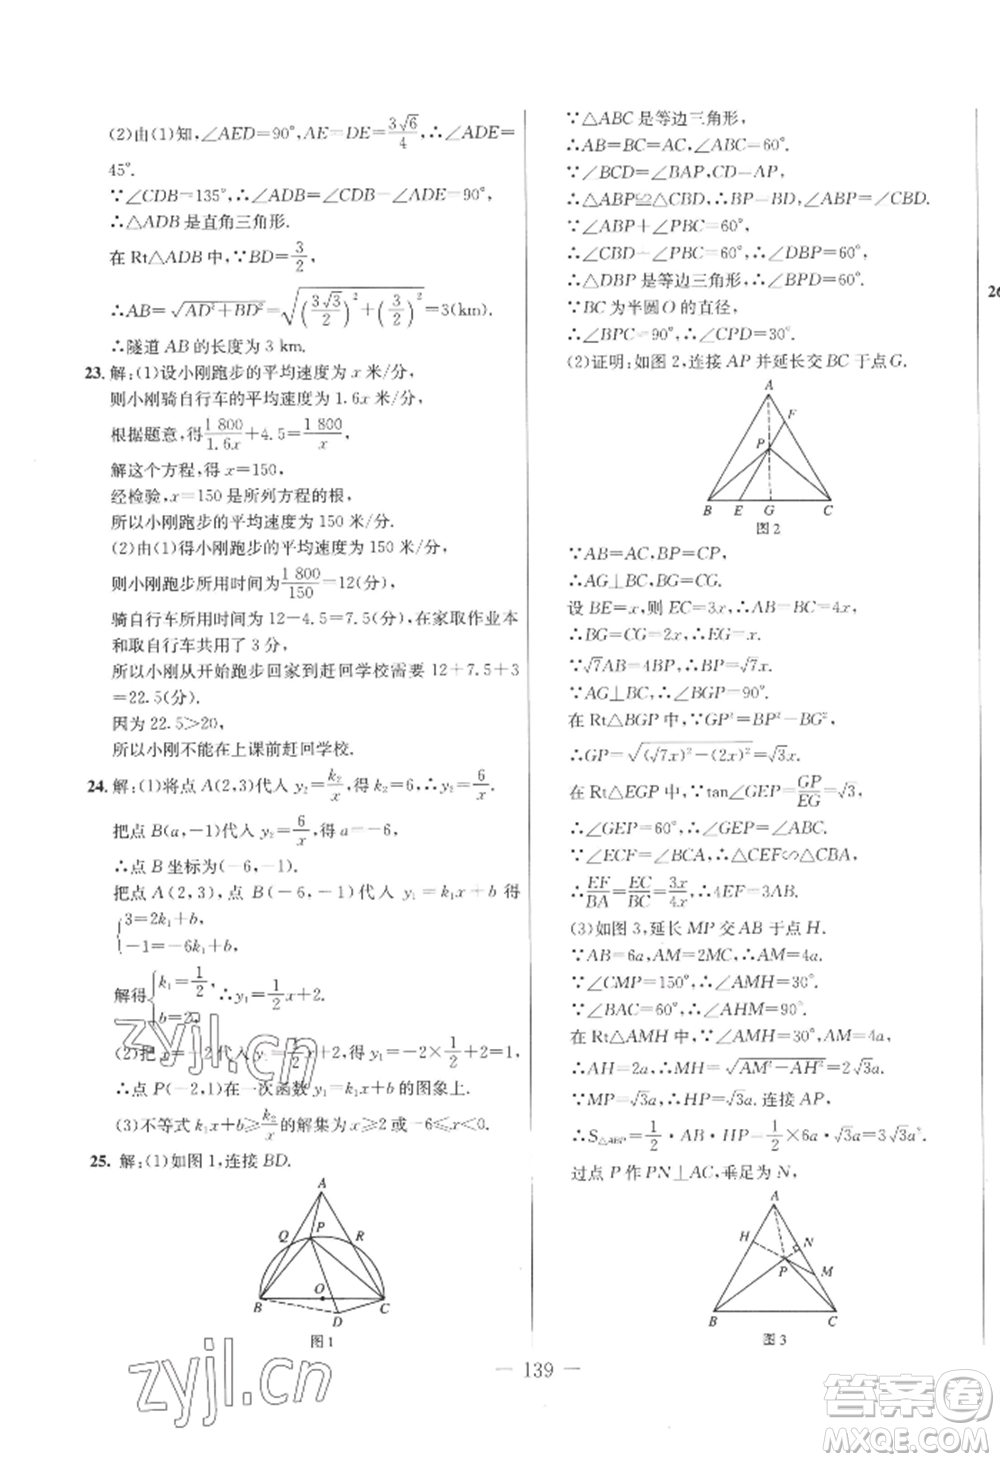 (2)由(1)知,∠AED=90°,AE=DE=3√6/4,∴∠ADE=
45°.
∵∠CDB=135°,∴∠ADB=∠CDB-∠ADE=90°,
∴△ADB 是直角三角形.
在 Rt△ADB 中,∵BD=3/2,
∴AB=√(AD²+BD²)=√((3√3/2)²+(3/2)²)=3(km).
∴隧道 AB 的长度为 3 km.
23. 解:(1)设小刚跑步的平均速度为 x 米/分,
则小刚骑自行车的平均速度为 1.6x 米/分,
根据题意,得1 800/1.6x+4.5=1 800/x,
解这个方程,得 x=150,
经检验,x=150 是所列方程的根,
所以小刚跑步的平均速度为 150 米/分.
(2)由(1)得小刚跑步的平均速度为 150 米/分,
则小刚跑步所用时间为1 800/150=12(分),
骑自行车所用时间为 12-4.5=7.5(分),在家取作业本
和取自行车共用了 3 分,
所以小刚从开始跑步回家到赶回学校需要 12+7.5+3
=22.5(分).
因为 22.5>20,
所以小刚不能在上课前赶回学校.
24. 解:(1)将点 A(2,3)代入 y₂=k₂/x,得 k₂=6,∴y₂=6/x.
把点 B(a,-1)代入 y₂=6/x,得 a=-6,
∴点 B 坐标为(-6,-1).
把点 A(2,3),点 B(-6,-1)代入 y₁=k₁x+b 得
{3=2k₁+b,
-1=-6k₁+b,
解得{k₁=1/2, b=2, ∴y₁=1/2x+2.
(2)把 x=-2代入 y₁=1/2x+2,得 y₁=-2×1/2+2=1,
∴点 P(-2,1)在一次函数 y₁=k₁x+b 的图象上.
(3)不等式 k₁x+b≥k₂/x的解集为 x≥2或-6≤x<0.
25. 解:(1)如图 1,连接 BD.
A
Q P R
O
B C
D
图 1
∵△ABC 是等边三角形,
∴AB=BC=AC,∠ABC=60°.
∵∠BCD=∠BAP,CD=AP,
∴△ABP≌△CBD,∴BP=BD,∠ABP=∠CBD.
∵∠ABP+∠PBC=60°,
∴∠CBD+∠PBC=60°,∴∠DBP=60°.
∴△DBP 是等边三角形,∴∠BPD=60°.
∵BC 为半圆 O 的直径,
∴∠BPC=90°,∴∠CPD=30°.
(2)证明:如图 2,连接 AP 并延长交 BC 于点 G.
A
F
P
B E G C
图 2
∵AB=AC,BP=CP,
∴AG⊥BC,BG=CG.
设 BE=x,则 EC=3x,∴AB=BC=4x,
∴BG=CG=2x,∴EG=x.
∵√7AB=4BP,∴BP=√7x.
∵AG⊥BC,∴∠BGP=90°.
在 Rt△BGP 中,∵GP²=BP²-BG²,
∴GP=√((√7x)²-(2x)²)=√3x.
在 Rt△EGP 中,∵tan∠GEP=GP/EG=√3,
∴∠GEP=60°,∴∠GEP=∠ABC.
∵∠ECF=∠BCA,∴△CEF∽△CBA,
∴EF/BA=EC/BC=3x/4x,∴4EF=3AB.
(3)如图 3,延长 MP 交 AB 于点 H.
∵AB=6a,AM=2MC,∴AM=4a.
∵∠CMP=150°,∴∠AMH=30°.
∵∠BAC=60°,∴∠AHM=90°.
在 Rt△AMH 中,∵∠AMH=30°,AM=4a,
∴AH=2a,∴MH=√(AM²-AH²)=2√3a.
∵MP=√3a,∴HP=√3a.连接 AP,
∴S△ABP=1/2·AB·HP=1/2×6a·√3a=3√3a².
过点 P 作 PN⊥AC,垂足为 N,
A
H N
P M
B C
图 3
26
— 139 —
zyjl.cn
zyjl.cn
答案卷
MXQE.COM